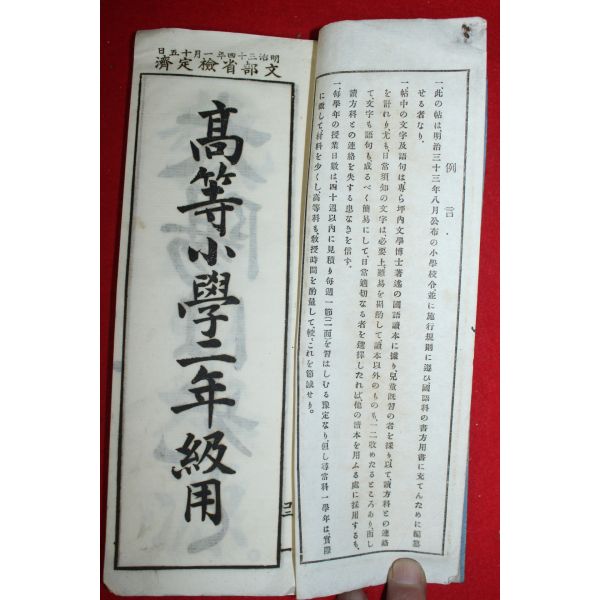 例言
一、此の帖は、明治三十三年八月公布の小學校令、並に施行規則に遵ひ國語科の書方用書に充てんために編纂
せる者なり。
一、帖中の文字及語句は、專ら坪内文學博士著述の國語讀本に據り、兒童既習の者を採り、以て讀方科との連絡
を計れり、尤も、日常須知の文字は、必要上、難易を斟酌して、讀本以外のものも、一二收めたるところあり、而し
て文字も語句も、成るべく簡易にして、日常適切なる者を選擇したれば、他の讀本を用ふる處に採用するも、
讀方科との連絡を失する患なきを信す。
一、每學年の授業日數は、四十週以內に見積り每週一節(二面)を習はしむる豫定なり、但し尋常科一學年は、實際
に徵して、材料を少くし、高等科も、敎授時間を酌量して、較、これを節減せり。
明治三十四年一月十五日
文部省檢定濟
高等小學二年級用